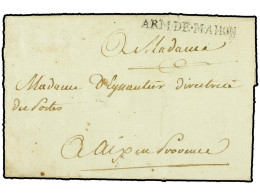 ARM.DE.MAHON
A Madame
Madame Eyguantier directrice
des Postes
A aix en Provence